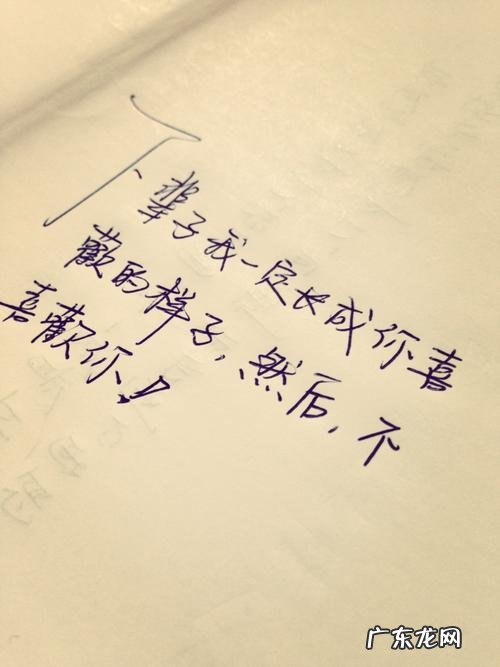 下辈子我一定长成你喜
歡的样子,然后,不
喜歡你!
广东龙网